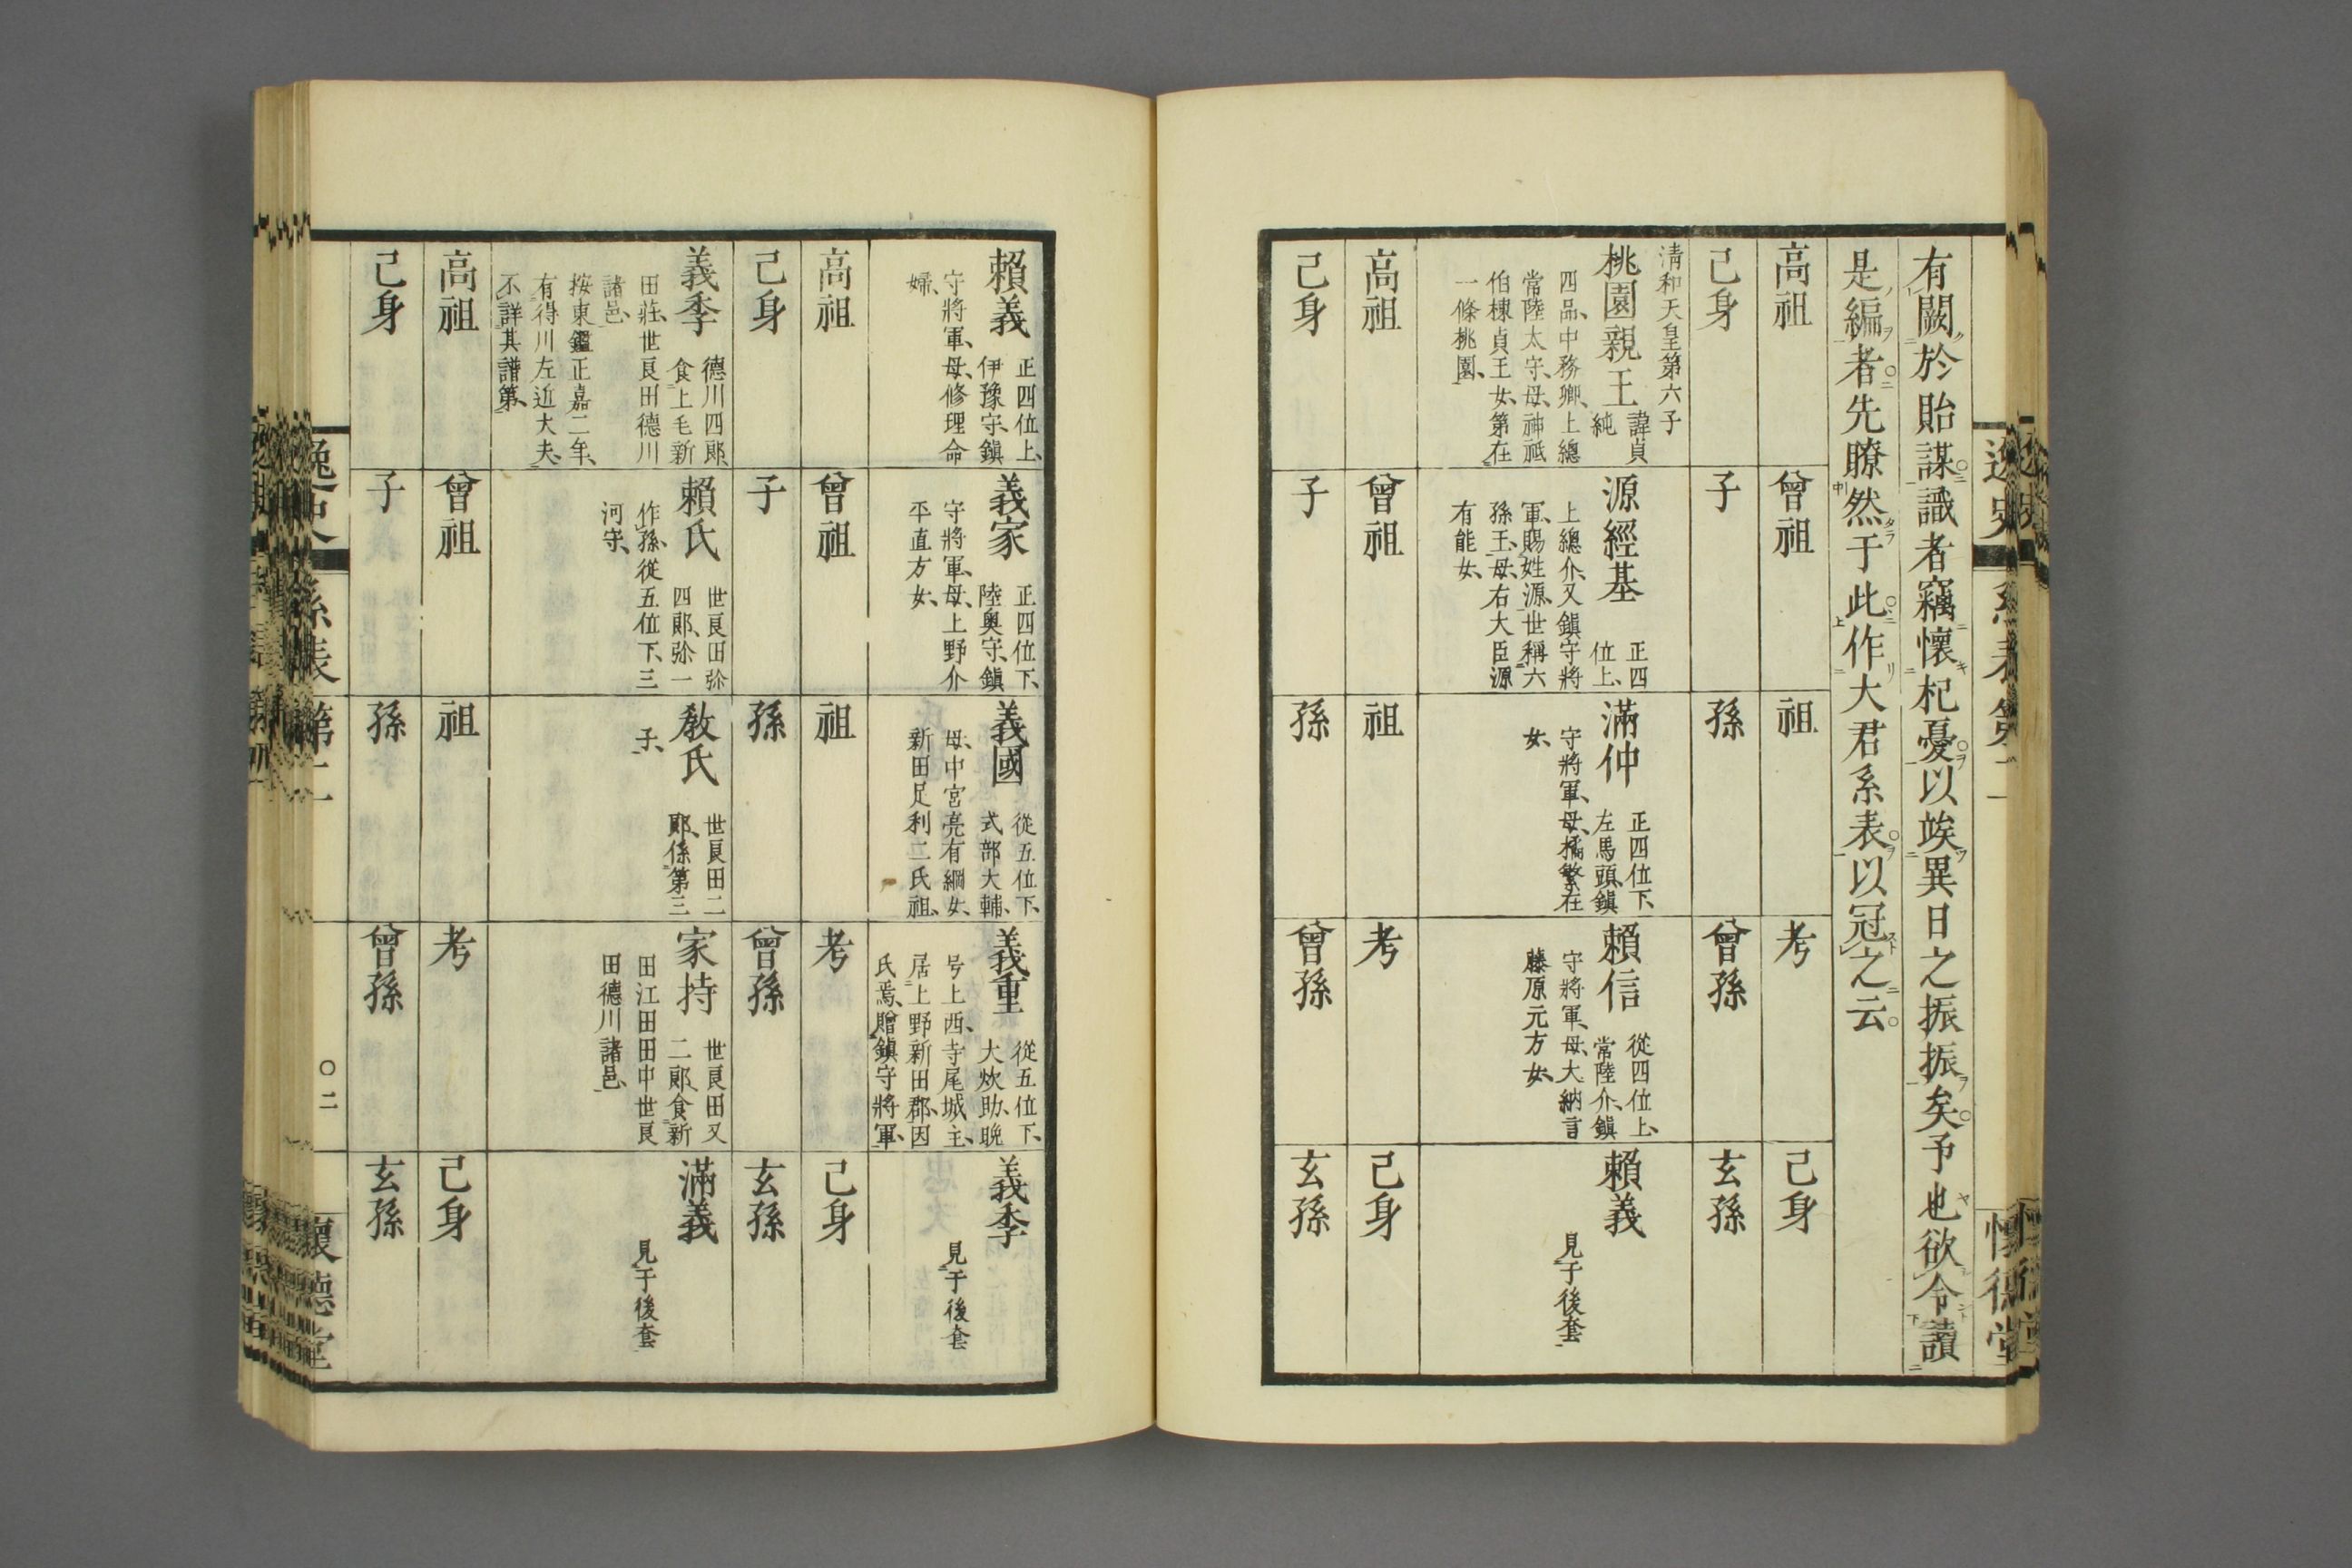 有闕於貽謀識者竊懷杞憂以竢異日之振振矣予也欲令讀
是編者先瞭然于此作大君系表以冠之云
高祖
曾祖
祖
考
己身
己身
子
孫
曾孫
玄孫
清和天皇第六子
桃園親王
諱貞
純
四品、中務卿、上總
常陸太守、母、神祇
伯棟貞王女、第在
一條桃園、
源經基
正四
位上、
上總介、又鎭守將
軍、賜姓源、世稱六
孫王、母、右大臣源
有能女、
滿仲
正四位下、
左馬頭、鎭
守將軍、母、橘繁在
女、
賴信
從四位上、
常陸介、鎭
守將軍、母、大納言
藤原元方女、
賴義
見于後套
高祖
曾祖
祖
考
己身
己身
子
孫
曾孫
玄孫
賴義
正四位上、
伊豫守、鎭
守將軍、母、修理命
婦、
義家
正四位下、
陸奧守、鎭
守將軍、母、上野介
平直方女、
義國
從五位下、
式部大輔、
母、中宮亮有綱女、
新田足利二氏祖、
義重
從五位下、
大炊助、晩
号上西、寺尾城主、
居上野新田郡、因
氏焉、贈鎭守將軍、
義季
見于後套
高祖
曾祖
祖
考
己身
己身
子
孫
曾孫
玄孫
義季
德川四郎、
食上毛新
田莊、世良田德川
諸邑、
按東鑑正嘉二年、
有得川左近大夫、
不詳其譜第、
賴氏
世良田弥
四郎、弥一
作孫、從五位下、三
河守、
敎氏
世良田二
郎、係第三
子、
家持
世良田又
二郎、食新
田江田田中世良
田德川諸邑、
滿義
見于後套
高祖
曾祖
祖
考
己身
己身
子
孫
曾孫
玄孫
逸史
系表第一
〇二
懷德堂